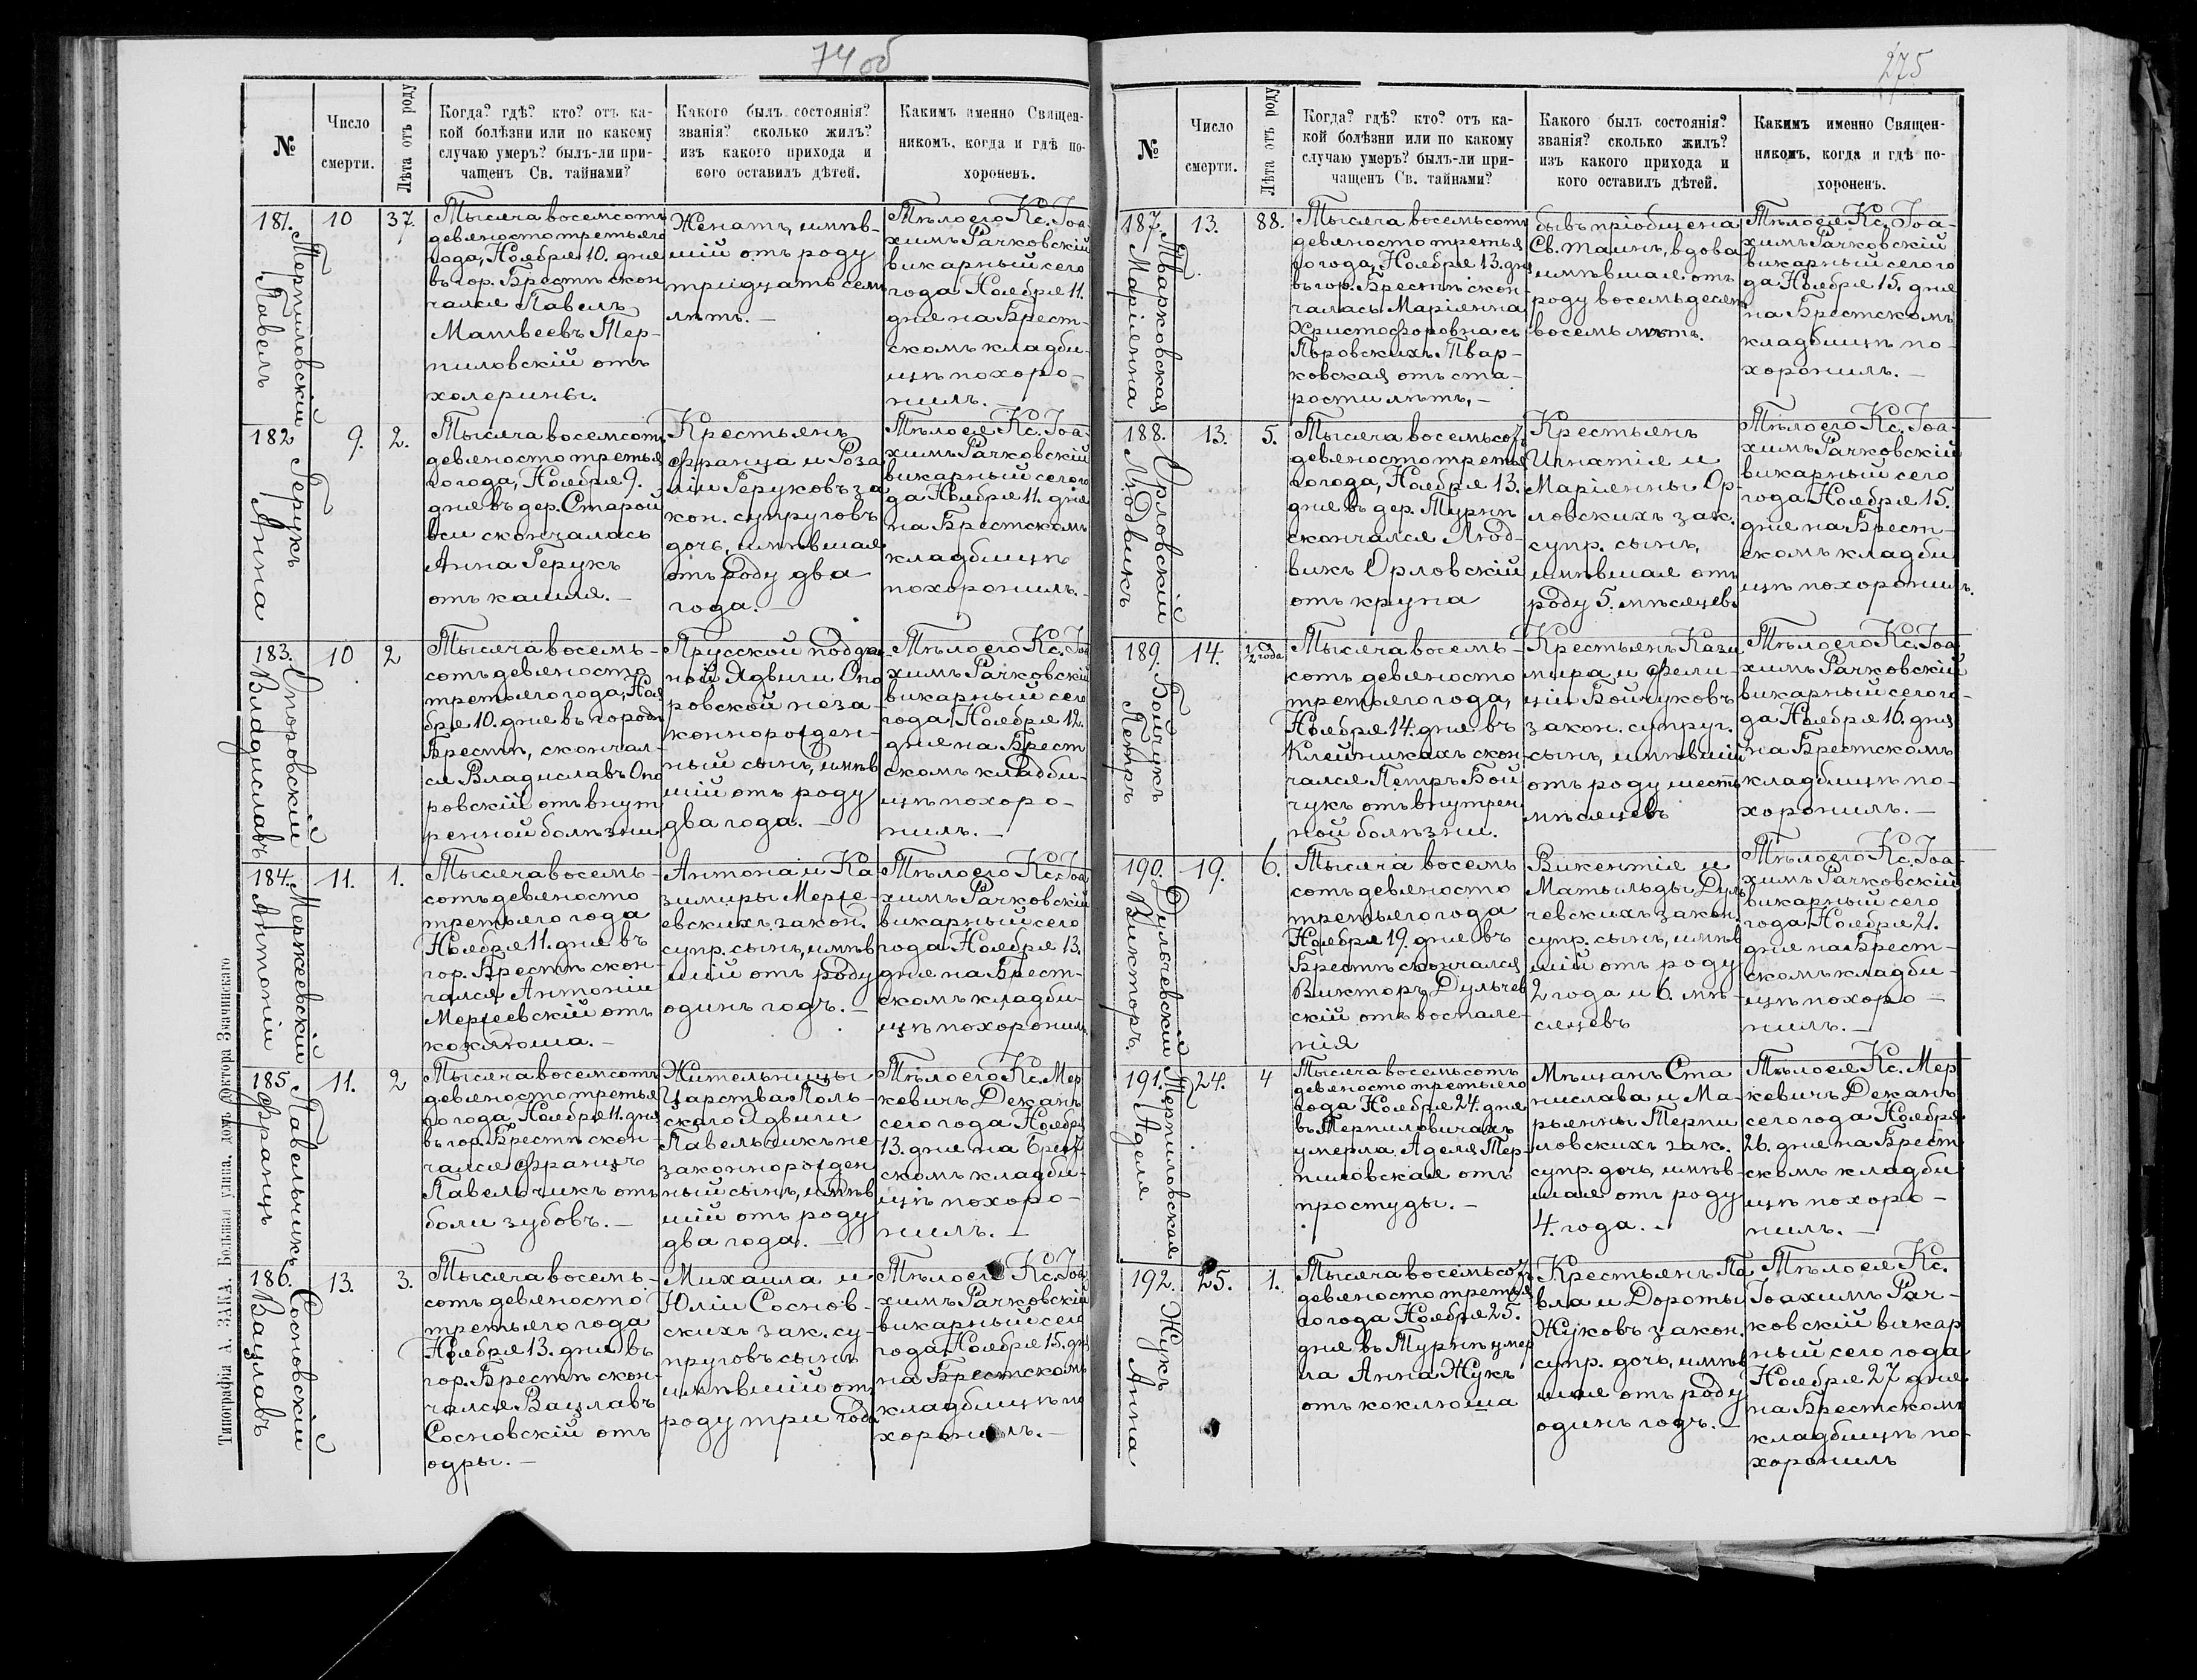 74 об
№
Число
смерти.
Лѣта отъ роду
Когда? гдѣ? кто? отъ ка-
кой болѣзни или по какому
случаю умеръ? былъ-ли при-
чащенъ Св. тайнами?
Какого былъ состоянія?
званія? сколько жилъ?
изъ какого прихода и
кого оставилъ дѣтей.
Какимъ именно Священ-
никомъ, когда и гдѣ по-
хороненъ.
181.
Терпиловскій
Павелъ
10
37.
Тысяча восемсотъ
девяносто третьяго
года, Ноября 10. дня
въ гор. Брестѣ скон
чался Павелъ
Матвеевъ Тер-
пиловскій отъ
холерины.
Женатъ, имѣв-
шій отъ роду
тридцать семь
лѣтъ. —
Тѣло его Кс. Іоа-
химъ Рачковскій
викарный сего
года Ноября 11.
дня на Брест-
скомъ кладби-
щѣ похоро-
нилъ. —
182
Герукъ
Анна
9.
2.
Тысяча восемсотъ
девяносто третья
го года, Ноября 9.
дня въ дер. Старой
вси скончалась
Анна Герукъ
отъ кашля. —
Крестьянъ
Франца и Роза
ліи Геруковъ за
кон. супруговъ
дочь, имѣвшая
отъ роду два
года. —
Тѣло ея Кс. Іоа-
химъ Рачковскій
викарный сего го
да Ноября 11. дня
на Брестскомъ
кладбищѣ
похоронилъ. —
183.
Опоровскій
Владиславъ
10
2
Тысяча восемь-
сотъ девяносто
третьяго года, Ноя
бря 10. дня въ городѣ
Брестѣ, скончал-
ся Владиславъ Опо
ровскій отъ внут
ренной болѣзни
Прусской поддан-
ной Ядвиги Опо
ровской неза-
коннорожден-
ный сынъ, имѣв
шій отъ роду
два года. —
Тѣло его Кс. Іоа
химъ Рачковскій
викарный сего
года Ноября 12.
дня на Брест
скомъ кладби-
щѣ похоро-
нилъ. —
184.
Мержеевскій
Антоній
11.
1.
Тысяча восемь-
сотъ девяносто
третьяго года
Ноября 11. дня въ
гор. Брестѣ скон-
чался Антоній
Мержеевскій отъ
коклюша. —
Антона и Ка
зимиры Мерже-
евскихъ закон.
супр. сынъ, имѣв
шій отъ роду
одинъ годъ. —
Тѣло его Кс. Іоа
химъ Рачковскій
викарный сего
года Ноября 13.
дня на Брест-
скомъ кладби-
щѣ похоронилъ
185
Павельчикъ
Францъ
11.
2
Тысяча восемсотъ
девяносто третья
го года Ноября 11. дня
въ гор. Брестѣ скон-
чался Францъ
Павельчикъ отъ
боли зубовъ. —
Жительницы
Царства Поль-
скаго Ядвиги
Павельчикъ не-
законнорожден
ный сынъ, имѣв
шій отъ роду
два года. —
Тѣло его Кс. Мер
кевичъ Деканъ
сего года Ноября
13. дня на Брест
скомъ кладби-
щѣ похоро-
нилъ. —
186.
Сосновскій
Вацлавъ
13.
3.
Тысяча восемь-
сотъ девяносто
третьяго года
Ноября 13. дня въ
гор. Брестѣ скон-
чался Вацлавъ
Сосновскій отъ
одры. —
Михаила и
Юліи Соснов-
скихъ зак. су-
пруговъ сынъ
имѣвшій отъ
роду три года
Тѣло его Кс. Іоа
химъ Рачковскій
викарный сего
года Ноября 15. дня
на Брестскомъ
кладбищѣ по
хоронилъ. —
Типографія А. ЗАКА. Большая улица, домъ Доктора Значинскаго
275
№
Число
смерти.
Лѣта отъ роду
Когда? гдѣ? кто? отъ ка-
кой болѣзни или по какому
случаю умеръ? былъ-ли при-
чащенъ Св. тайнами?
Какого былъ состоянія?
званія? сколько жилъ?
изъ какого прихода и
кого оставилъ дѣтей.
Какимъ именно Священ-
никомъ, когда и гдѣ по-
хороненъ.
187.
Тварковская
Маріянна
13.
88.
Тысяча восемьсотъ
девяносто третья
го года, Ноября 13. дня
въ гор. Брестѣ скон-
чалась Маріянна
Христофоровна съ
Пѣровскихъ Твар-
ковская отъ ста-
рости лѣтъ, —
бывъ пріобщена
Св. таинъ, вдова
имѣвшая отъ
роду восемьдесятъ
восемь лѣтъ.
Тѣло ея Кс. Іоа-
химъ Рачковскій
викарный сего го
да Ноября 15. дня
на Брестскомъ
кладбищѣ по-
хоронилъ. —
188.
Орловскій
Людвикъ
13.
5.
Тысяча восемьсотъ
девяносто третья
го года, Ноября 13.
дня въ дер. Турнѣ
скончался Люд-
викъ Орловскій
отъ крупа
Крестьянъ
Игнатія и
Маріянны Ор-
ловскихъ зак.
супр. сынъ,
имѣвшая отъ
роду 5. мѣсяцевъ
Тѣло его Кс. Іоа-
химъ Рачковскій
викарный сего
года Ноября 15.
дня на Брест-
скомъ кладби
щѣ похоронилъ.
189.
Бойчукъ
Петръ
14.
1/2 года
Тысяча восемь-
сотъ девяносто
третьяго года,
Ноября 14. дня въ
Клейникахъ скон-
чался Петръ Бой
чукъ отъ внутрен
ной болѣзни.
Крестьянъ Кази
мира и Фели-
ціи Бойчуковъ
закон. супруг.
сынъ, имѣвшій
отъ роду шесть
мѣсяцевъ
Тѣло его Кс. Іоа
химъ Рачковскій
викарный сего го-
да Ноября 16. дня
на Брестскомъ
кладбищѣ по-
хоронилъ. —
190.
Дульчевскій
Викторъ
19.
6.
Тысяча восемь
сотъ девяносто
третьяго года
Ноября 19. дня въ
Брестѣ скончался
Викторъ Дульчев
скій отъ воспале-
нія
Викентія и
Матыльды Дуль
чевскихъ закон.
супр. сынъ, имѣв
шій отъ роду
2 года и 6. мѣ-
сяцевъ
Тѣло его Кс. Іоа-
химъ Рачковскій
викарный сего
года Ноября 21.
дня на Брест-
скомъ кладби-
щѣ похоро-
нилъ. —
191.
Терпиловская
Аделя
24.
4
Тысяча восемьсотъ
девяносто третьяго
года Ноября 24. дня
въ Терпиловичахъ
умерла Аделя Тер-
пиловская отъ
простуды. —
Мѣщанъ Ста
нислава и Ма-
рьянны Терпи
ловскихъ зак.
супр. дочь, имѣв-
шая отъ роду
4. года. —
Тѣло ея Кс. Мер
кевичъ Деканъ
сего года Ноября
26. дня на Брест
скомъ кладби
щѣ похоро-
нилъ. —
192.
Жукъ
Анна
25.
1.
Тысяча восемьсотъ
девяносто третья
го года Ноября 25.
дня въ Турнѣ умер
ла Анна Жукъ
отъ коклюша
Крестьянъ Па
вла и Дороты
Жуковъ закон.
супр. дочь, имѣв
шая отъ роду
одинъ годъ. —
Тѣло ея Кс.
Іоахимъ Рач-
ковскій викар
ный сего года
Ноября 27 дня
на Брестскомъ
кладбищѣ по-
хоронилъ